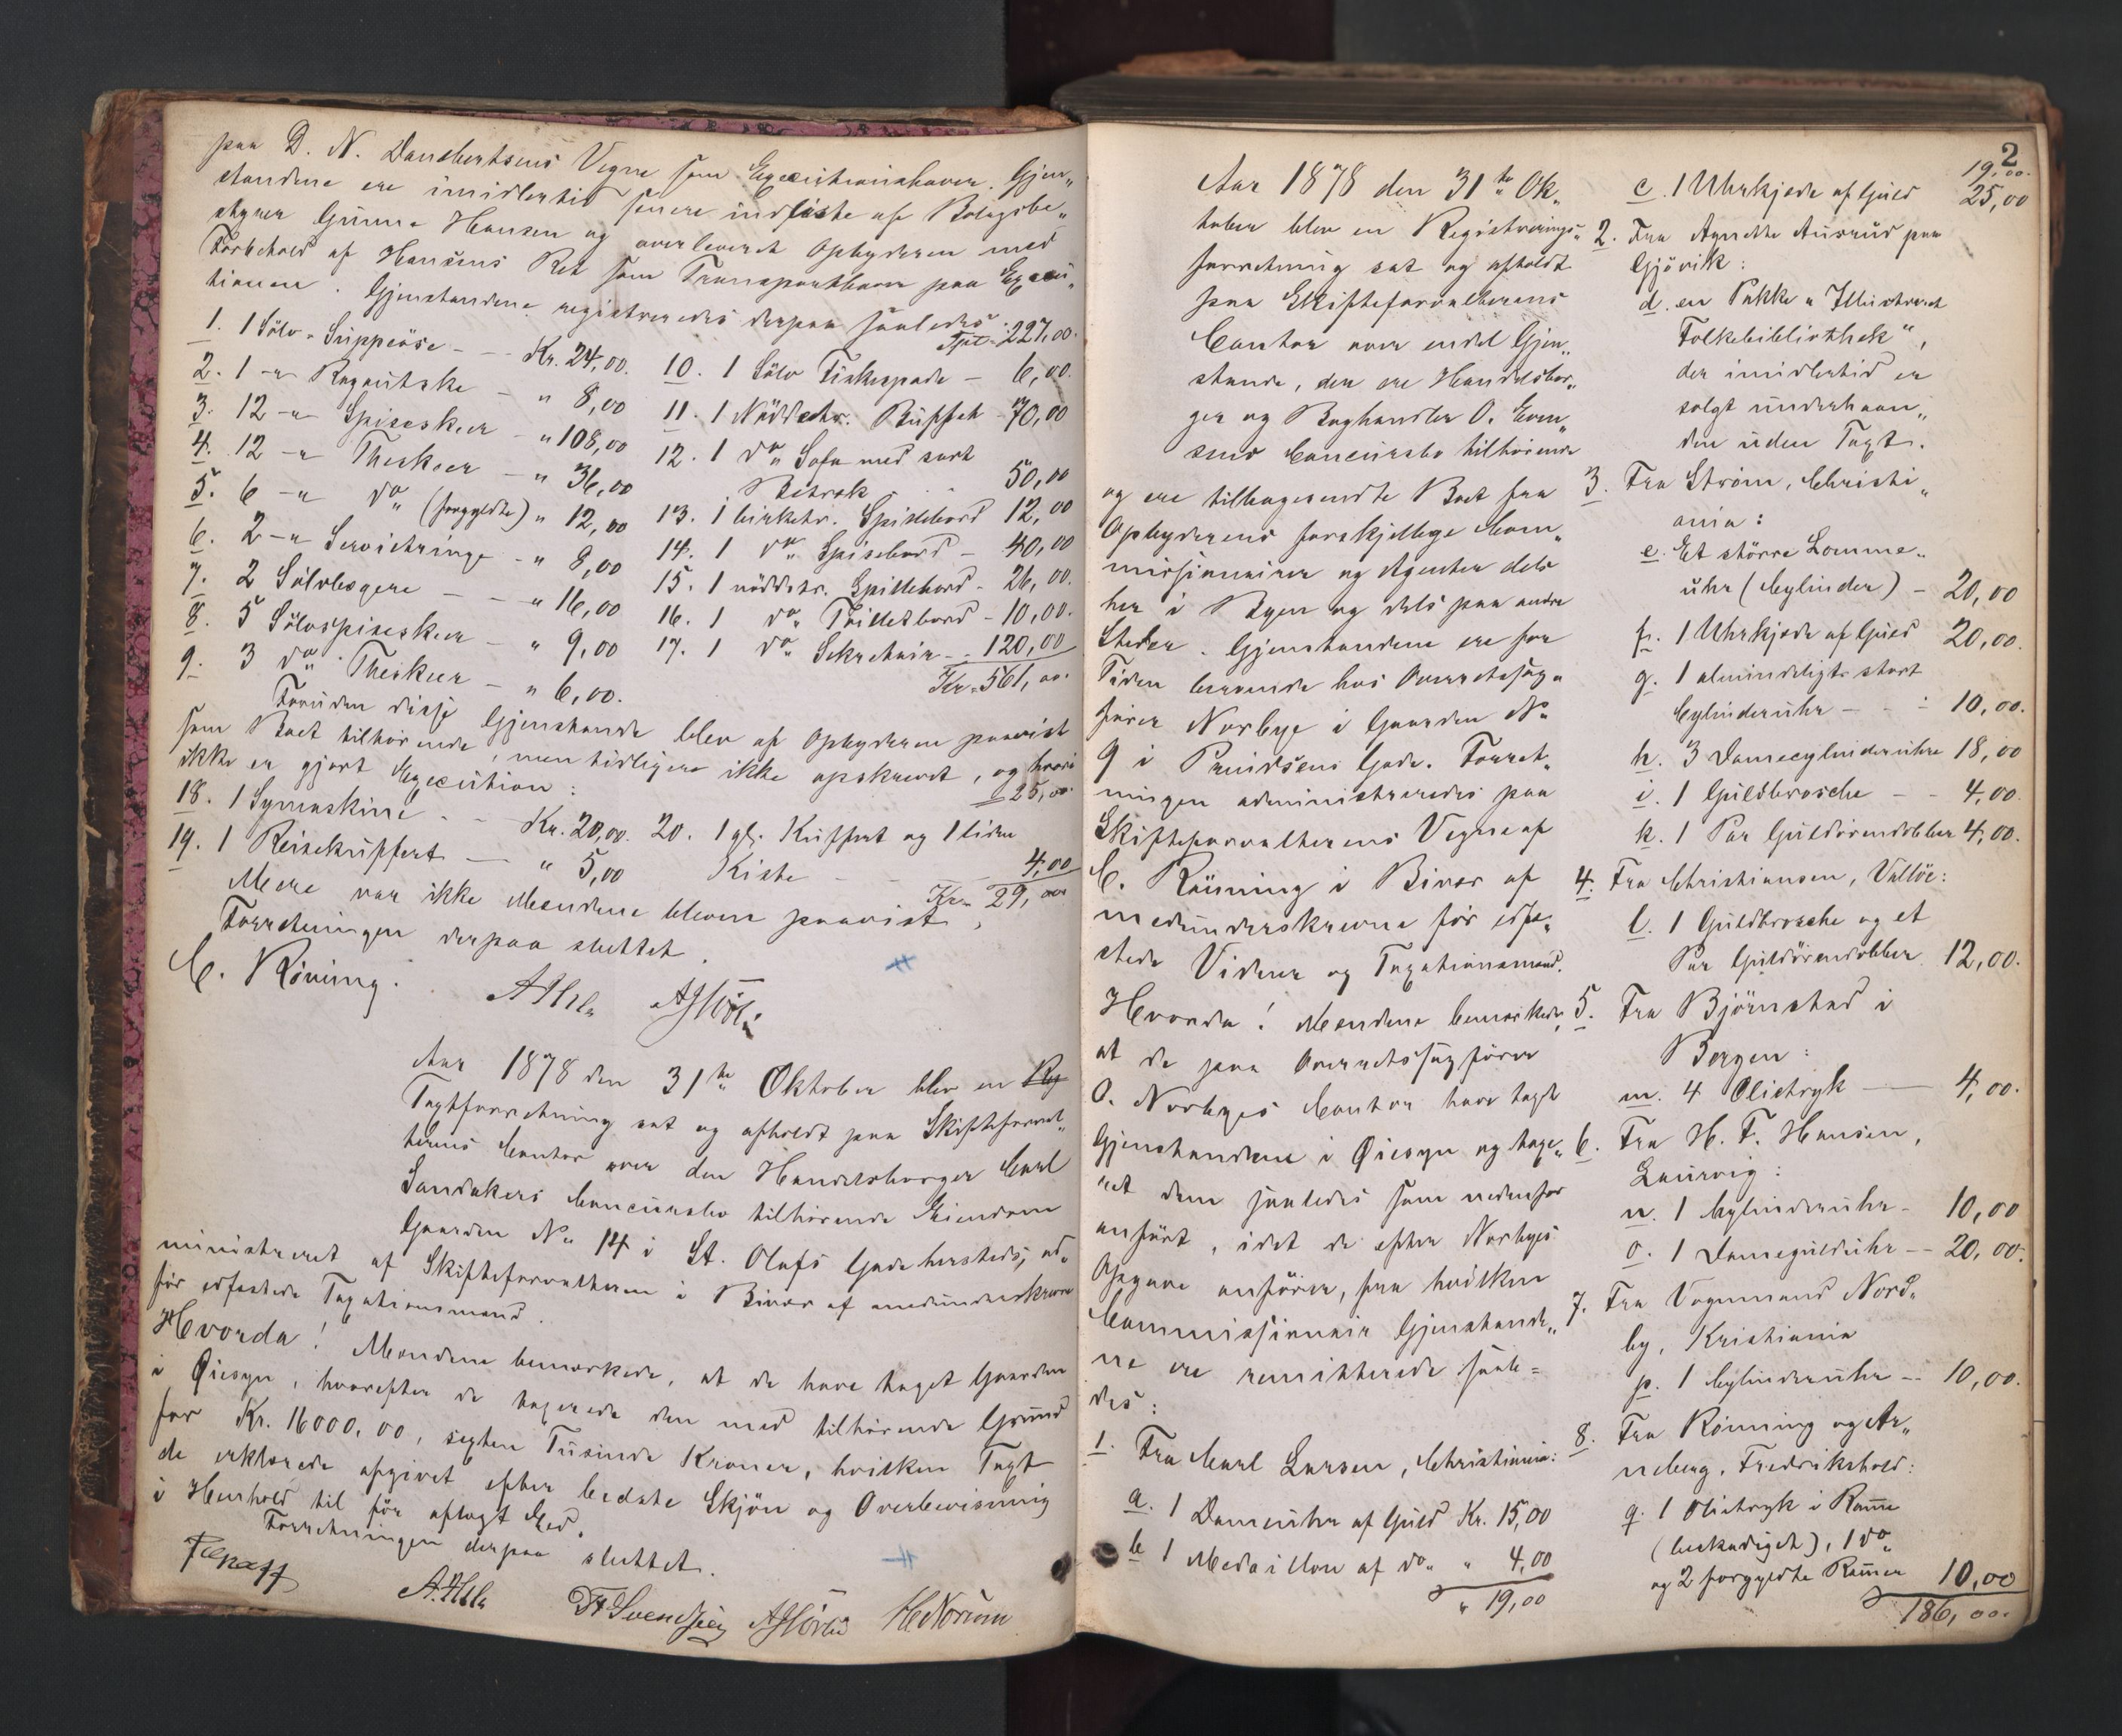 paa D. N. Danebertsens Vegne som Executionshaver. Gjen„
standene ere imidlertid senere indløste af Bolagsbe„
styrer Gunne Hansen og overleveret Opbyderen med
Forbehold af Hansens Ret som Transporthaver paa Execu„
tionen. Gjenstandene registreredes derpaa saaledes:
1. 1 Sölv-Suppeöse - - Kr. 24,00.
2. 1 -"- Ragoutske - " 8,00
3. 12 -"- Spiseskeer - " 108,00
4. 12 -"- Theskeer - " 36,00
5. 6 -"- do (forgyldte) " 12,00
6. 2 -"- Servietringe - " 8,00
7. 2 Sölvbægere - - " 16,00
8. 5 Sölvspiseskeer - " 9,00
9. 3 do Theskeer - " 6,00.
Tpt. 227,00.
10. 1 Sölv Fiskespade - 6,00.
11. 1 Nöddetr. Buffet - 70,00
12. 1 do Sofa med sort
Betræk 50,00
13. 1 birketr. Spillebord 12,00
14. 1 do Spisebord - 40,00
15. 1 nöddetr. Spillebord - 26,00.
16. 1 do Toiletbord - 10,00.
17. 1 do Sekretair - - 120,00
Kr. 561,00.
Foruden disse Gjenstande blev af Opbyderen paavist
som Boet tilhörende, men tidligere ikke opskrevet, og hvori
ikke er gjort Execution:
18. 1 Symaskine - - Kr. 20,00.
19. 1 Reisekuffert - " 5,00
25,00.
20. 1 gl. Kuffert og 1 liden
Kiste - - 4,00
Kr. 29,00
Mere var ikke Mændene bleven paavist,
Forretningen derpaa sluttet.
C. Röning.
Aar 1878 den 31te Oktober blev en Reg
Taxtforretning sat og afholdt paa Skifteforval„
terens Contor over den Handelsborger Carl
Sandakers Concursbo tilhörende Eiendom
Gaarden No 14 i St. Olafs Gade hersteds, ad„
ministreret af Skifteforvalteren i Bivær af medunderskrevne
för edfæstede Taxationsmænd.
Hvorda! Mændene bemærkede, at de have taget Gaarden
i Öiesyn, hvorefter de taxerede den med tilhörende Grund
for Kr. 16000,00, sexten Tusinde Kroner, hvilken Taxt
de erklærede afgivet efter bedste Skjön og Overbevisning
i Henhold til för aflagt Ed.
Forretningen derpaa sluttet.
H. Norum
2
Aar 1878 den 31te Ok„
tober blev en Registrerings„
forretning sat og afholdt
paa Skifteforvalterens
Contor over endel Gjen„
stande, der ere Handelsbor„
ger og Boghandler O. Even„
sens Concursbo tilhörende
og ere tilbagesendte Boet fra
Opbyderens forskjellige Com„
missionairer og Agenter dels
her i Byen og dels paa andre
Steder. Gjenstandene ere for
Tiden beroende hos Overretssag„
förer Norbye i Gaarden No
9 i Prindsens Gade. Forret„
ningen administreredes paa
Skifteforvalterens Vegne af
C. Röning i Bivær af
medunderskrevne för edfæ„
stede Vidner og Taxationsmænd.
Hvorda! Mændene bemærkede,
at de paa Overretssagförer
O. Norbyes Contor have tagt
Gjenstandene i Öiesyn og taxe„
ret dem saaledes som nedenfor
anfört, idet de efter Norbyes
Opgave anförer, fra hvilken
Commissionair Gjenstande„
ne ere remitterede saale=
des:
1. Fra Carl Larsen, Christiania:
a. 1 Dameuhr af Guld Kr. 15,00
b 1 Medaillon af do " 4,00
" 19,00
19,00.
c. 1 Uhrkjede af Guld 25,00
2. Fra Agnethe Ausrud paa
Gjövik:
d. en Pakke „Illustreret
Folkebibliothek",
der imidlertid er
solgt underhaan„
den uden Taxt.
3. Fra Ström, Christi„
ania:
e. Et större Lomme„
uhr (Cylinder) - 20,00
f. 1 Uhrkjede af Guld 20,00.
g. 1 almindeligt stort
Cylinderuhr - - - 10,00.
h. 3 Damecylinderuhre 18,00
i. 1 Guldbrosche - - 4,00.
k. 1 Par Guldörendobber 4,00.
4. Fra Christiansen, Vallöe:
l. 1 Guldbrosche og et
Par Guldörendobber 12,00.
5. Fra Björnstad i
Bergen:
m. 4 Olietryk - 4,00.
6. Fra H. F. Hansen,
Laurvig:
n. 1 Cylinderuhr - 10,00
o. 1 Damegulduhr - - 20,00.
7. Fra Vognmand Nord„
by, Kristiania
p. 1 Cylinderuhr - - 10,00.
8. Fra Rönning og Ar„
neberg, Fredrikshald:
q. 1 Olietryk i Ramme
(beskadiget), 1 do
og 2 forgyldte Rammer 10,00
186,00.